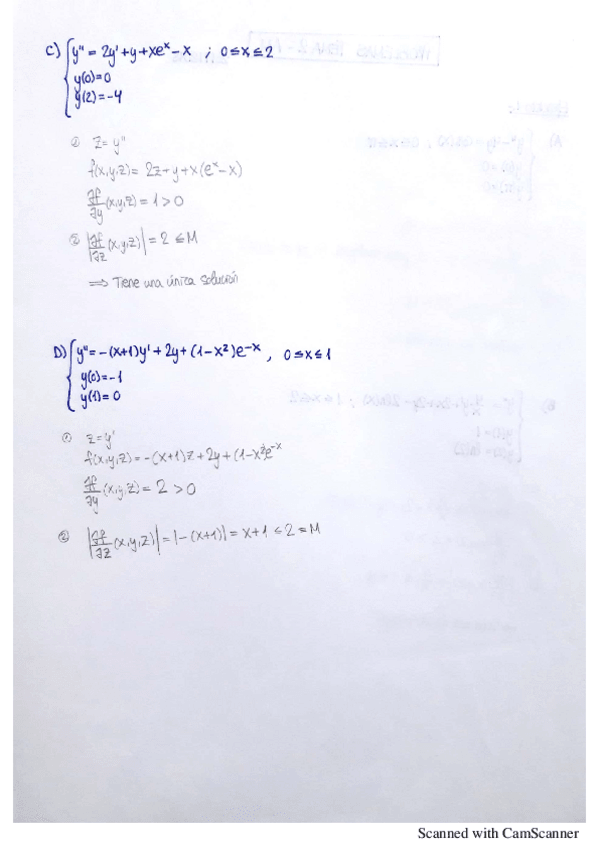 C) { y'' = 2y' + y + xeˣ - x ; 0 ≤ x ≤ 2
y(0) = 0
y(2) = -4
① z = y''
f(x,y,z) = 2z + y + x(eˣ - x)
∂f/∂y (x,y,z) = 1 > 0
② |∂f/∂z (x,y,z)| = 2 ≤ M
⟹ Tiene una única solución
D) { y'' = -(x+1)y' + 2y + (1-x²)e⁻ˣ , 0 ≤ x ≤ 1
y(0) = -1
y(1) = 0
① z = y'
f(x,y,z) = -(x+1)z + 2y + (1-x²)e⁻ˣ
∂f/∂y (x,y,z) = 2 > 0
② |∂f/∂z (x,y,z)| = |-(x+1)| = x+1 ≤ 2 = M
Scanned with CamScanner